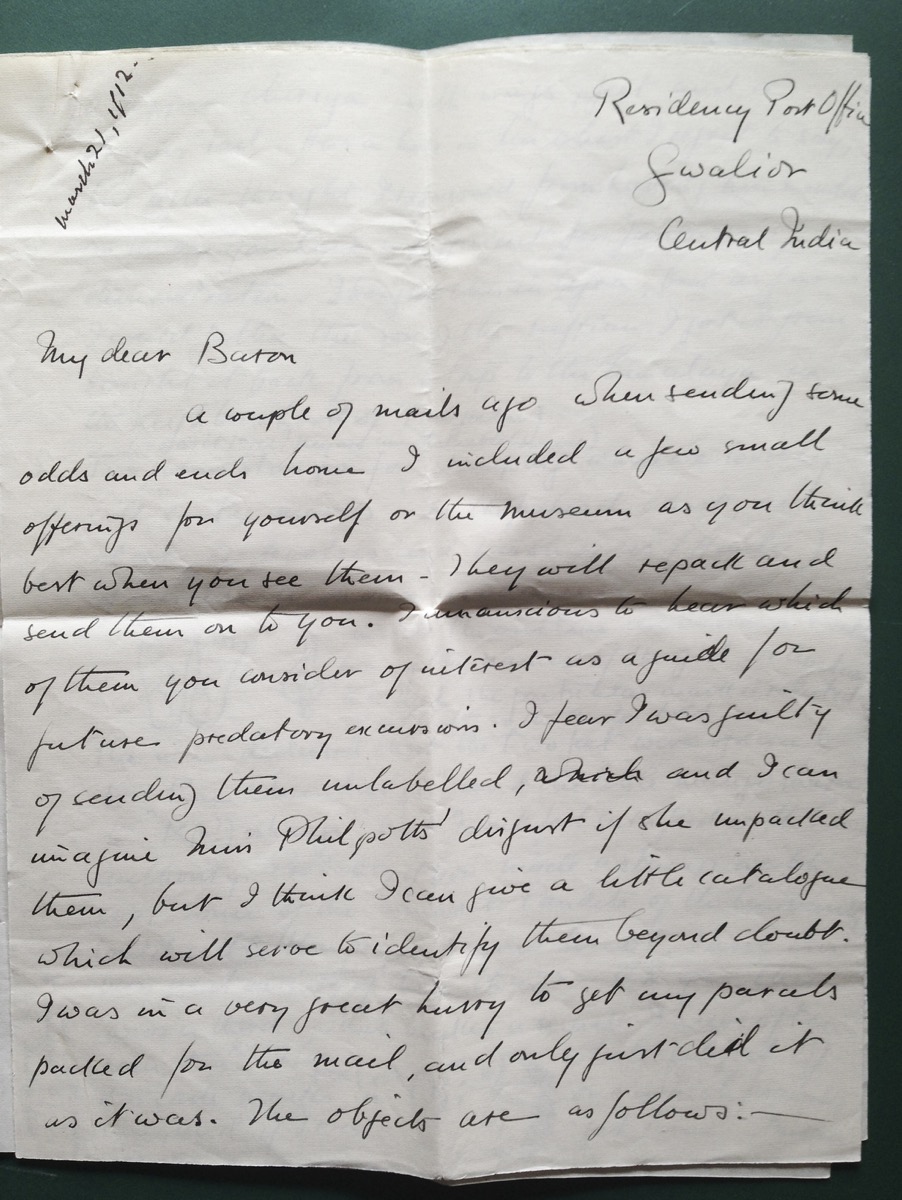 March 21, 1912.
Residency Post Office
Gwalior
Central India
My dear Baron
A couple of mails ago when sending some
odds and ends home I included a few small
offerings for yourself or the museum as you think
best when you see them - They will repack and
send them on to you. I am anxcious to hear which
of them you consider of interest as a guide for
future predatory excursions. I fear I was guilty
of sending them unlabelled, which and I can
imagine Miss Philpotts' disgust if she unpacked
them, but I think I can give a little catalogue
which will serve to identify them beyond doubt.
I was in a very great hurry to get my parcels
packed for the mail, and only just did it
as it was. The objects are as follows:—